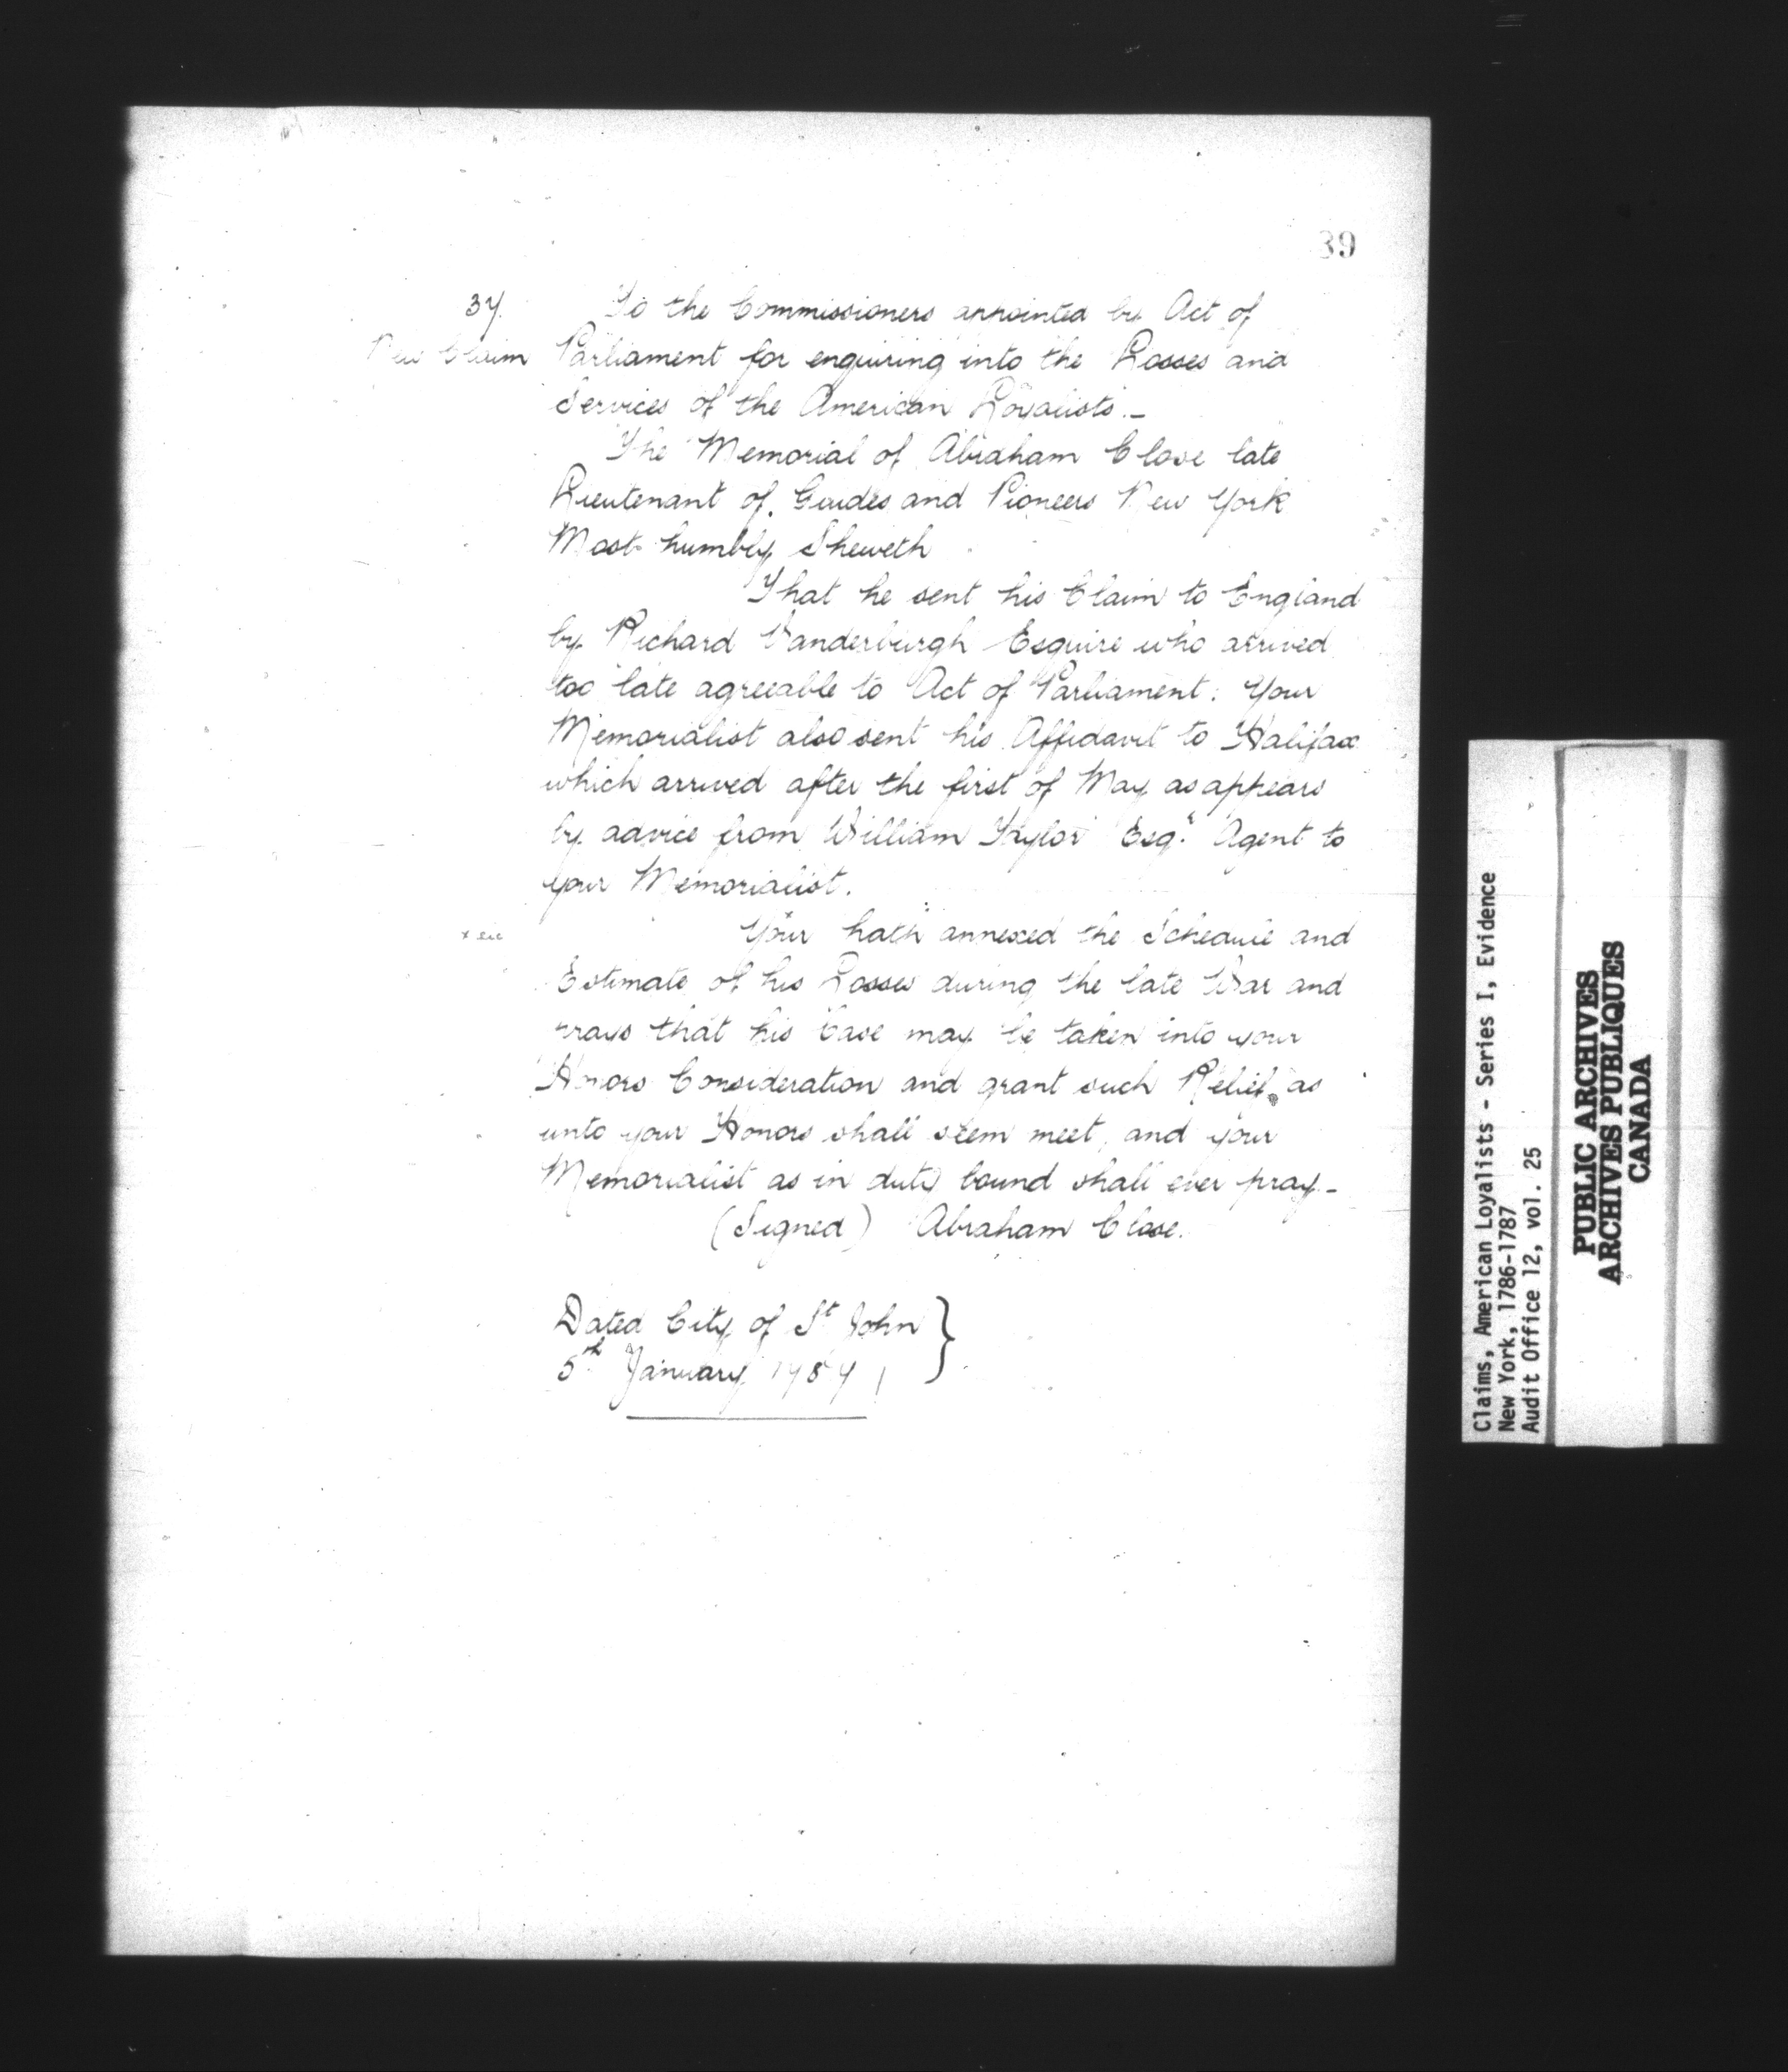 39
37.
New Claim
To the Commissioners appointed by Act of
Parliament for enquiring into the Losses and
Services of the American Loyalists._
The Memorial of Abraham Close late
Lieutenant of Guides and Pioneers New York
Most humbly Sheweth
That he sent his Claim to England
by Richard Vanderburgh Esquire who arrived
too late agreeable to Act of Parliament: Your
Memorialist also sent his Affidavit to Halifax
which arrived after the first of May as appears
by advice from William Taylor Esq.r Agent to
your Memorialist.
x sic
Your hath annexed the Schedule and
Estimate of his Losses during the late War and
prays that his Case may be taken into your
Honors Consideration and grant such Relief as
unto your Honors shall seem meet, and your
Memorialist as in duty bound shall ever pray_
(Signed) Abraham Close.
Dated City of St John }
5th January 1787
Claims, American Loyalists - Series I, Evidence
New York, 1786-1787
Audit Office 12, vol. 25
PUBLIC ARCHIVES
ARCHIVES PUBLIQUES
CANADA